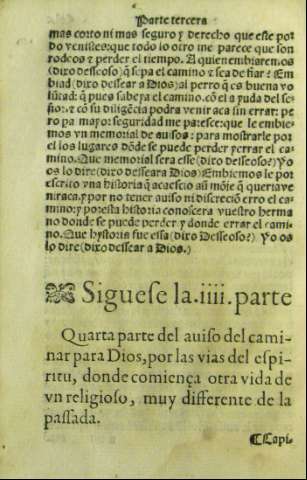 Parte tercera
mas corto ni mas seguro y derecho que este por
do venistes: que todo lo otro me parece que son
rodeos y perder el tiempo. A quien embiaremos
(dixo desseoso) q̃ sepa el camino y sea de fiar? Em
biad (dixo dessear a Dios) al perro q̃ es buena vo
lũtad: q̃ pues sabe ya el camino, cõ el ayuda del se
ñor: y cõ su diligẽcia podra venir aca sin errar: pe
ro pa mayor seguridad me paresce: que le embie-
mos vn memorial de auisos: para mostrarle por
el los lugares dõde se puede perder y errar el ca-
mino. Que memorial sera esse (dixo desseoso?) Yo
os lo dire (dixo desseara Dios) Embiemos le por
escrito vna historia q̃ acaescio aũ mõje q̃ queria ve
nir aca, y por no tener auiso ni discreciõ erro el ca-
mino: y por esta historia conoscera vuestro herma
no donde se puede perder y donde errar el cami-
no. Que hystoria fue essa (dixo Desseoso?) Yo os
lo dire (dixo dessear a Dios.)
Siguese la .iiii. parte
Quarta parte del auiso del cami-
nar para Dios, por las vias del espi-
ritu, donde comiença otra vida de
vn religioso, muy differente de la
passada.
¶Capi-